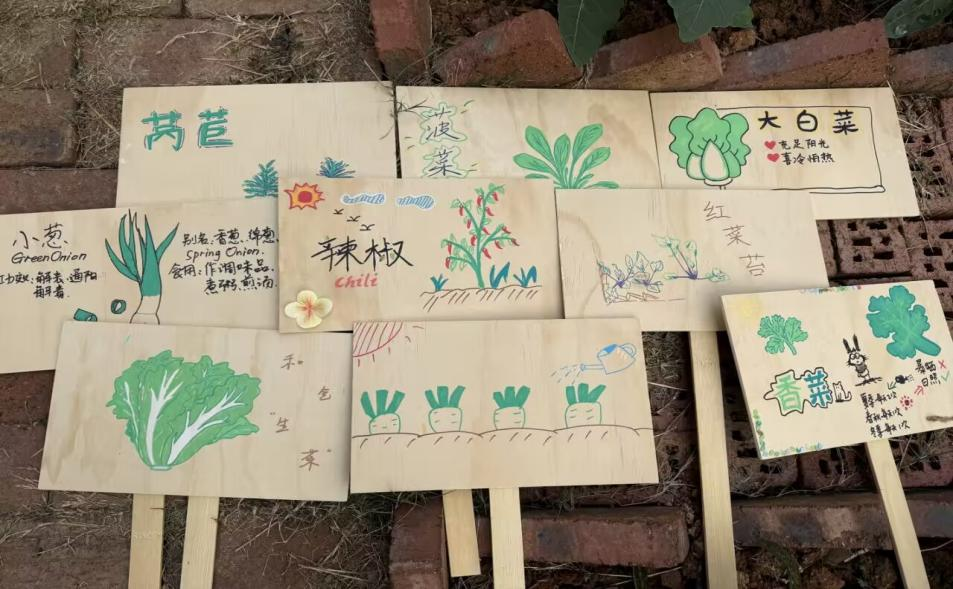 莴苣
菠菜
大白菜
充足阳光
喜冷怕热
小葱
GreenOnion
功效:解表、通阳
解毒。
别名:香葱、绵葱、
Spring Onion.
食用:作调味品、
煮粥、煎汤
辣椒
Chili
红菜苔
"生
菜"
香菜
暴晒
日照